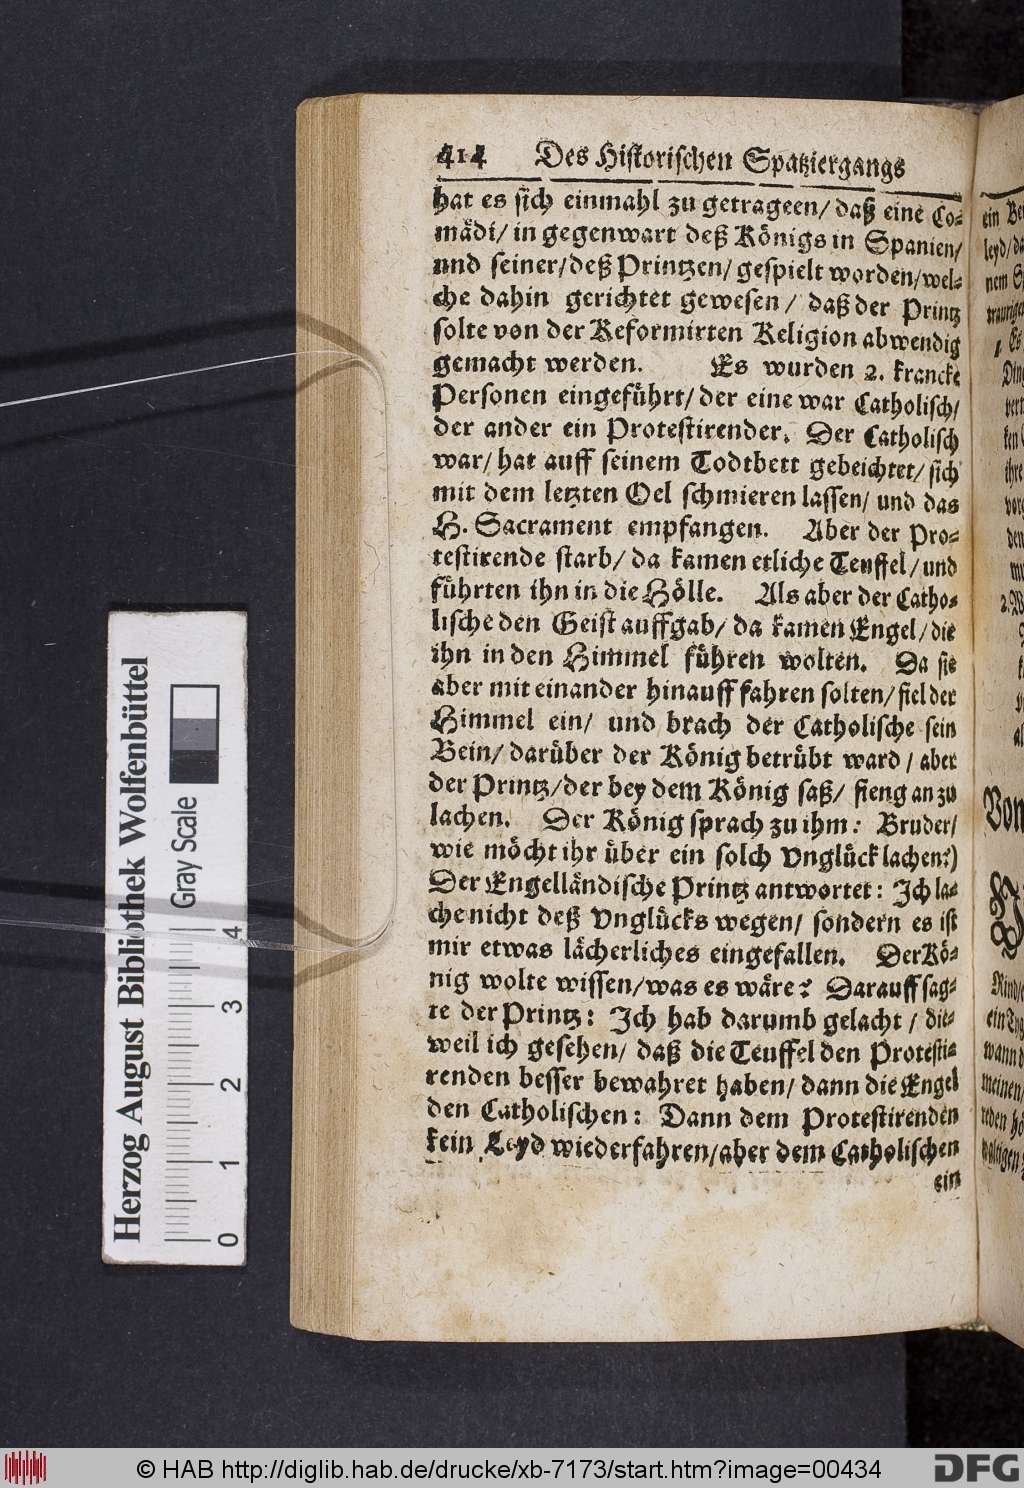 414 Des Historischen Spatziergangs
hat es sich einmahl zu getrageen/ daß eine Co-
mädi/ in gegenwart deß Königs in Spanien/
und seiner/deß Printzen/ gespielt worden/wel-
che dahin gerichtet gewesen / daß der Printz
solte von der Reformirten Religion abwendig
gemacht werden. Es wurden 2. krancke
Personen eingeführt/ der eine war Catholisch/
der ander ein Protestirender. Der Catholisch
war/ hat auff seinem Todtbett gebeichtet/ sich
mit dem letzten Oel schmieren lassen/ und das
H. Sacrament empfangen. Aber der Pro-
testirende starb/ da kamen etliche Teuffel/ und
führten ihn in die Hölle. Als aber der Catho-
lische den Geist auffgab/ da kamen Engel/ die
ihn in den Himmel führen wolten. Da sie
aber mit einander hinauff fahren solten/ fiel der
Himmel ein/ und brach der Catholische sein
Bein/ darüber der König betrübt ward / aber
der Printz/ der bey dem König saß/ fieng an zu
lachen. Der König sprach zu ihm: Bruder/
wie möcht ihr über ein solch Vnglück lachen?)
Der Engelländische Printz antwortet: Ich la-
che nicht deß Vnglücks wegen/ sondern es ist
mir etwas lächerliches eingefallen. Der Kö-
nig wolte wissen/ was es wäre? Darauff sag-
te der Printz: Ich hab darumb gelacht / die-
weil ich gesehen/ daß die Teuffel den Protesti-
renden besser bewahret haben/ dann die Engel
den Catholischen: Dann dem Protestirenden
kein Leyd wiederfahren/aber dem Catholischen
ein
ein
leyd/
nem
Es
Von
Herzog August Bibliothek Wolfenbüttel
Gray Scale
0 1 2 3 4
© HAB http://diglib.hab.de/drucke/xb-7173/start.htm?image=00434
DFG